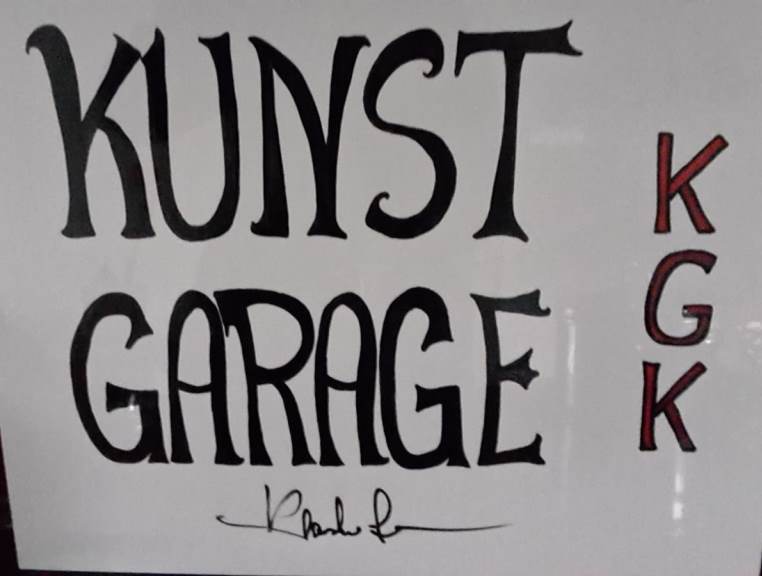 KUNST
GARAGE
K
G
K